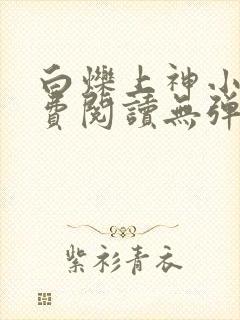 白爍上神小
費閱讀無彈
紫衫青衣